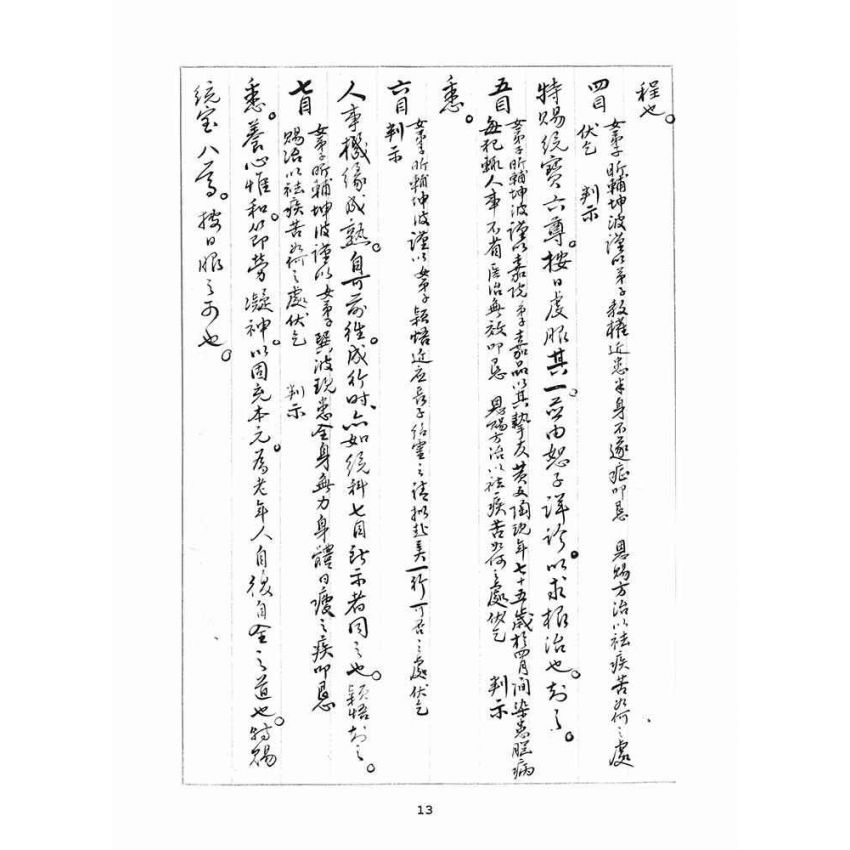 程也。
四目 女弟子昕輔坤波謹以弟子教權近患半身不遂症叩懇 恩賜方治以祛疾苦如何之處
伏乞 判示
特賜統寶六尊。按日虔服其一。並由恕子詳診。以求根治也。知之。
五目 女弟子昕輔坤波謹以嘉院弟子嘉品以其摯友黃文陶現年七十五歲於四月間染患腦病
每犯輒人事不省医治無效叩懇 恩賜方治以祛疾苦如何之處伏乞 判示
悉。
六目 女弟子昕輔坤波謹以女弟子穎悟近应長子紹霊之請擬赴美一行可否之處伏乞
判示
人事機緣成熟。自可前往。成行時、亦如統科七目訓示者同之也。穎悟知之。
七目 女弟子昕輔坤波謹以女弟子巽波現患全身無力身體日瘦之疾叩懇
賜治以祛疾苦如何之處伏乞 判示
悉。養心惟和。節勞凝神。以固充本元。為老年人自復自全之道也。特賜
統宝八尊。按日服之可也。
13